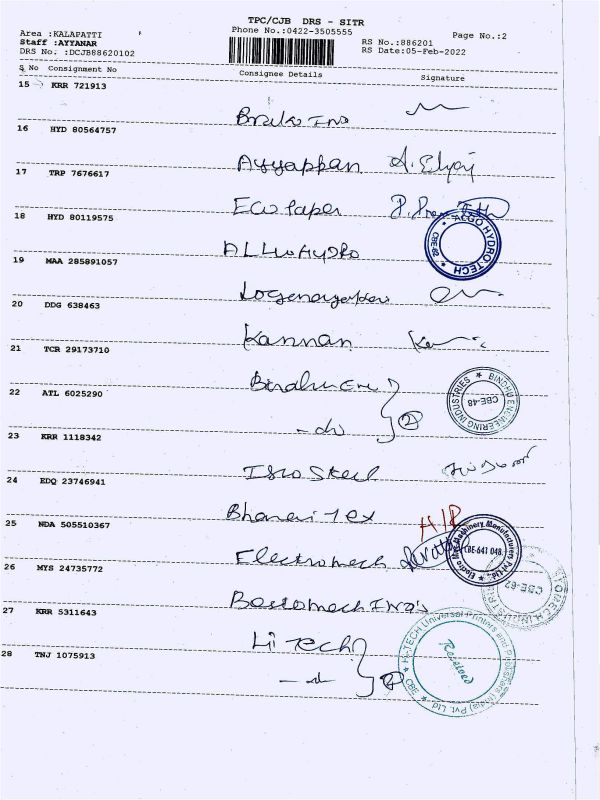 TPC/CJB DRS - SITR
Area :KALAPATTI
Phone No.:0422-3505555
Page No.:2
Staff :AYYANAR
RS No.:886201
DRS No. :DCJB88620102
RS Date:05-Feb-2022
S No Consignment No
Consignee Details
Signature
15 KRR 721913
16 HYD 80564757
Ayyappan
17 TRP 7676617
Eco Paper
18 HYD 80119575
ALGO HYDRO TECH
CBE-62
19 MAA 285891057
20 DDG 638463
Kannan
21 TCR 29173710
Bindhu
BINDHU ENGINEERING INDUSTRIES
CBE-48
22 ATL 6025290
- do
2
23 KRR 1118342
Isro Steel
24 EDQ 23746941
Bhavani Tex
25 NDA 505510367
Electromech
Machinery Manufacturers Pvt Ltd.,
CBE-641 048.
26 MYS 24735772
Bestomech Ind's
CBE-62
27 KRR 5311643
Hi Tech
HI-TECH Universal Printers and Publishers (India) Pvt. Ltd
CBE
Received
28 TNJ 1075913